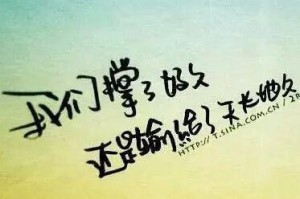 我们撑了好久
还是输给了天长地久
HTTP://T.SINA.COM.CN/2R